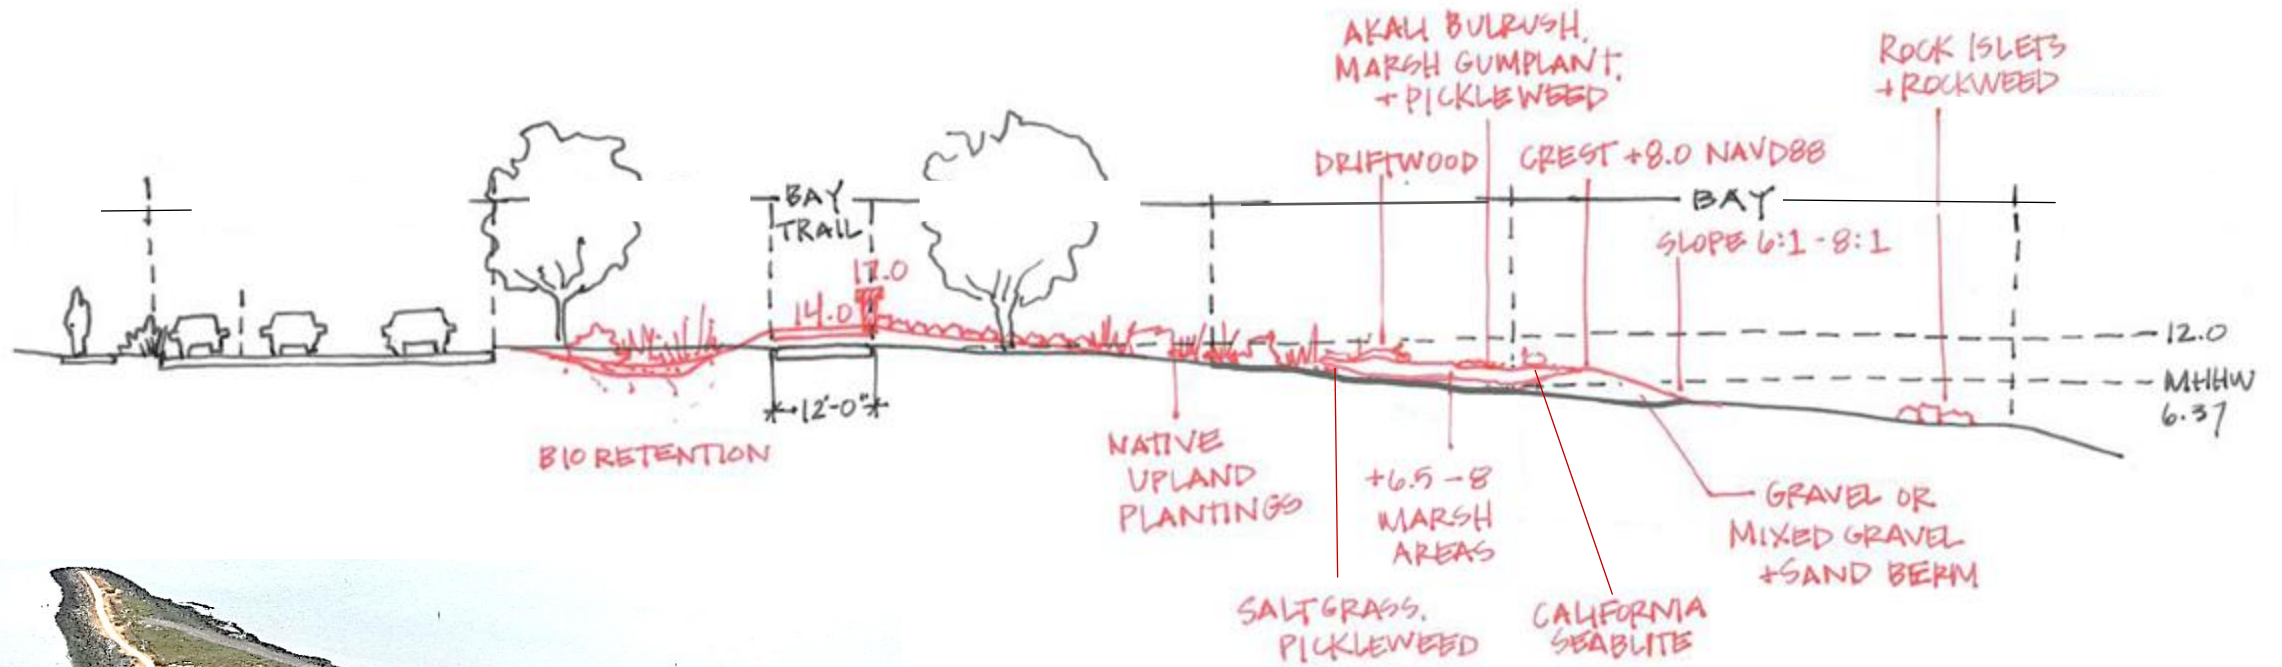 AKALI BULRUSH,
MARSH GUMPLANT,
+ PICKLEWEED
ROCK ISLETS
+ ROCKWEED
DRIFTWOOD
CREST +8.0 NAVD88
BAY
TRAIL
BAY
SLOPE 6:1 - 8:1
17.0
14.0
12.0
MHHW
6.37
12'-0"
BIO RETENTION
NATIVE
UPLAND
PLANTINGS
+6.5 - 8
MARSH
AREAS
GRAVEL OR
MIXED GRAVEL
+ SAND BERM
SALTGRASS,
PICKLEWEED
CALIFORNIA
SEABLITE